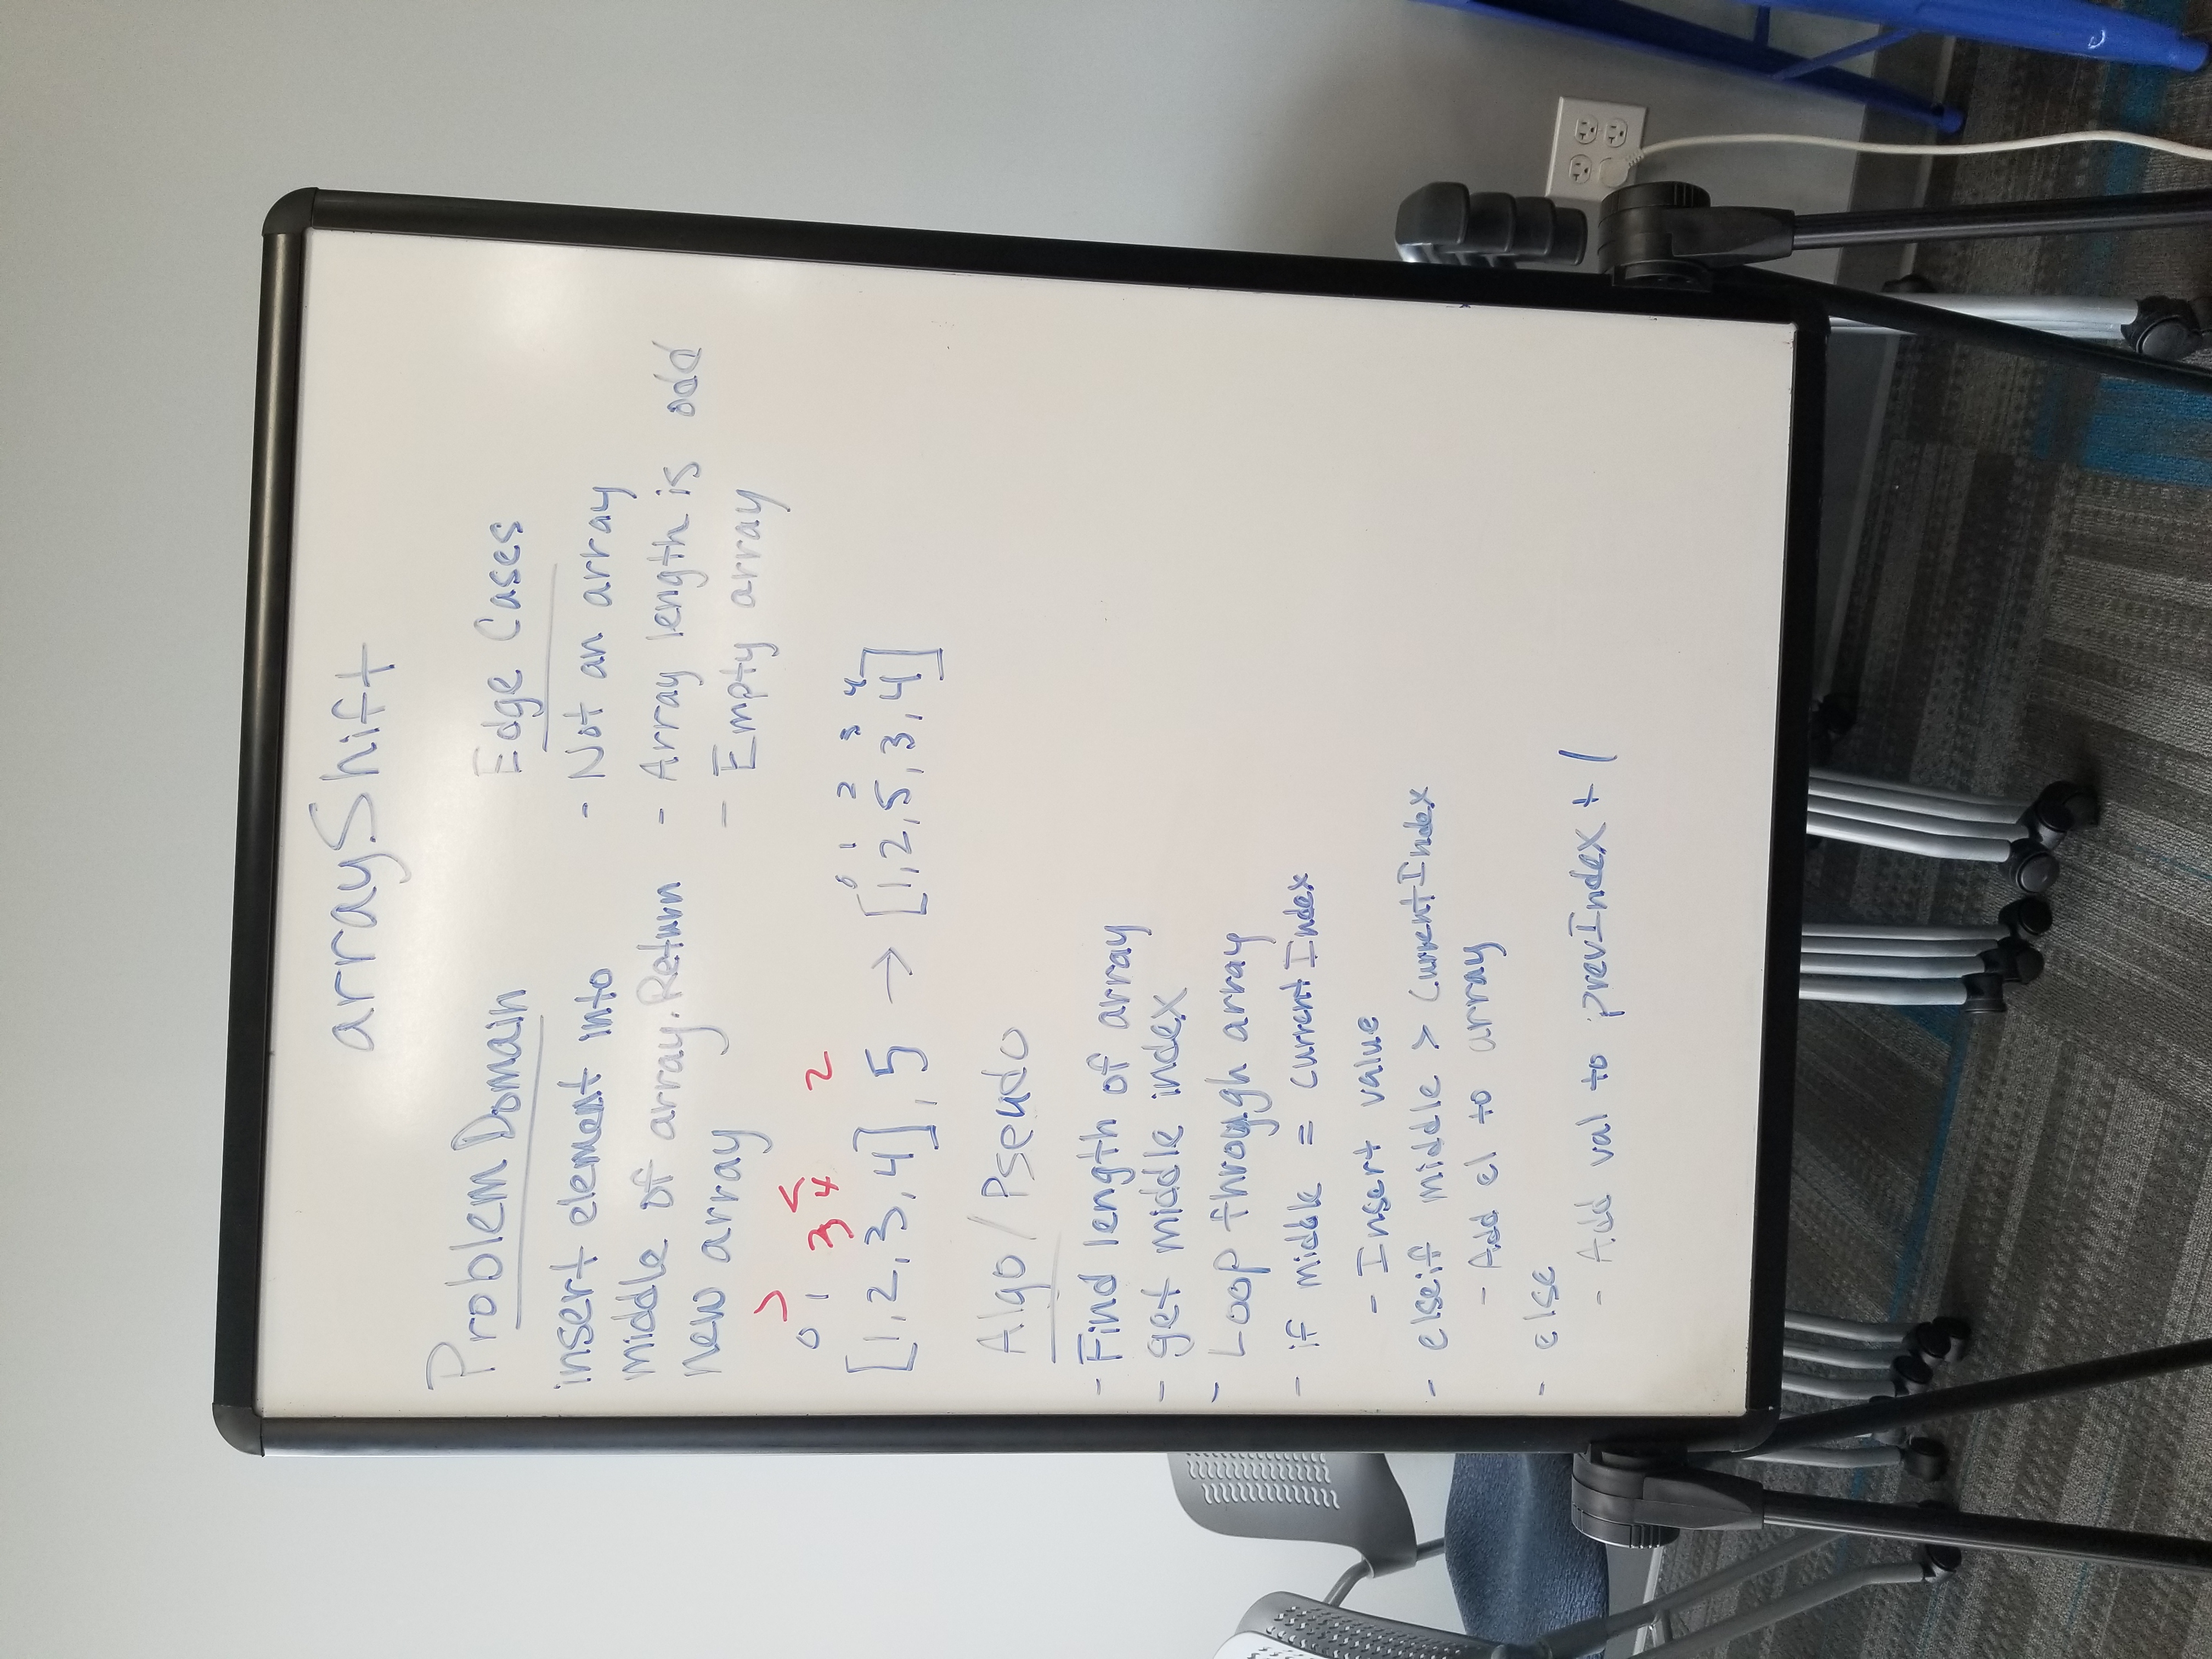 arrayShift
Problem Domain
insert element into
middle of array. Return
new array
Edge Cases
- Not an array
- Array length is odd
- Empty array
> <
0 1 3 4 2
0 1 2 3 4
[1,2,3,4], 5 → [1,2,5,3,4]
Algo/Pseudo
- Find length of array
- get middle index
- Loop through array
- if middle = currentIndex
- Insert value
- elseif middle > currentIndex
- Add el to array
- else
- Add val to prevIndex + 1